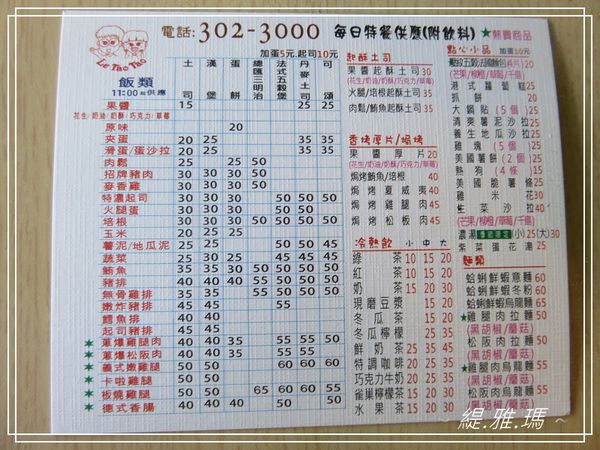 Le Tao Tao
電話:302-3000 每日特餐供應(附飲料)
★熱賣商品
飯類
11:00起供應
加蛋5元.起司10元
土司 漢堡 蛋餅 總匯三明治 法式五穀堡 丹麥土司 可頌
果醬 15 25 25
花生/奶油/奶酥/巧克力/草莓
原味 20
夾蛋 20 25 35 35
滑蛋/蛋沙拉 20 25 35 35
肉鬆 25 25 25 50
招牌豬肉 30 30 30 50 50 50
麥香雞 30 30 30 50
特濃起司 30 30 30 50 50 50
火腿蛋 30 30 30 50 50 50
培根 30 30 30 50 50 50
玉米 20 25 25
薯泥/地瓜泥 25 25 50 50 45
蔬菜 25 30 25 50 50 45
鮪魚 35 35 30 50 50 55 50
豬排 40 40 35 55 55 55 50
無骨雞排 45 45
嫩炸豬排 45 45 55
鱈魚排 45 45
起司豬排 45 45
★蔥爆雞腿肉 40 40 35
★蔥爆松阪肉 40 40 35
★義式嫩雞腿 50 50 60 60 60
★卡啦雞腿 50 50
★板燒雞腿 50 50 65 60 60 55
★德式香腸 40 40 40 50 50
起酥土司
果醬起酥土司30
(花生/奶油/奶酥/巧克力/草莓)
火腿/培根起酥土司35
肉鬆/鮪魚起酥土司35
香烤厚片/焗烤
果醬厚片20
(花生/奶油/奶酥/巧克力/草莓)
焗烤鮪魚/培根40
焗烤夏威夷40
焗烤雞腿肉45
焗烤松板肉45
冷熱飲 小 中 大
綠茶 10 15 20
紅茶 10 15 20
奶茶 15 20 30
現磨豆漿 15 20
冬瓜茶 15 20
冬瓜檸檬 25 35
鮮奶茶 25 35 45
特調咖啡 20 25 40
巧克力牛奶 20 25 40
雀巢檸檬茶 15 20 30
水果茶 15 20 30
點心小品 加蛋10元
(芒果/柳橙/草莓/千島)
港式蘿蔔糕25
抓餅20
大鍋貼(5個)25
清爽蔬菜沙拉25
養生地瓜沙拉25
雞塊(5個)25
美國薯餅(2個)25
熱狗(4條)15
美國脆薯條25
雞米花30
生菜沙拉40
(芒果/柳橙/草莓/千島)
濃湯 (小)25(大)30
紫菜蛋花湯25
麵類
蛤蜊鮮蝦意麵60
蛤蜊鮮蝦冬粉60
蛤蜊鮮蝦烏龍麵65
★雞腿肉拉麵50
(黑胡椒/蘑菇)
松阪肉拉麵50
(黑胡椒/蘑菇)
★雞腿肉烏龍麵55
(黑胡椒/蘑菇)
松阪肉烏龍麵55
(黑胡椒/蘑菇)
緹.雅.瑪~